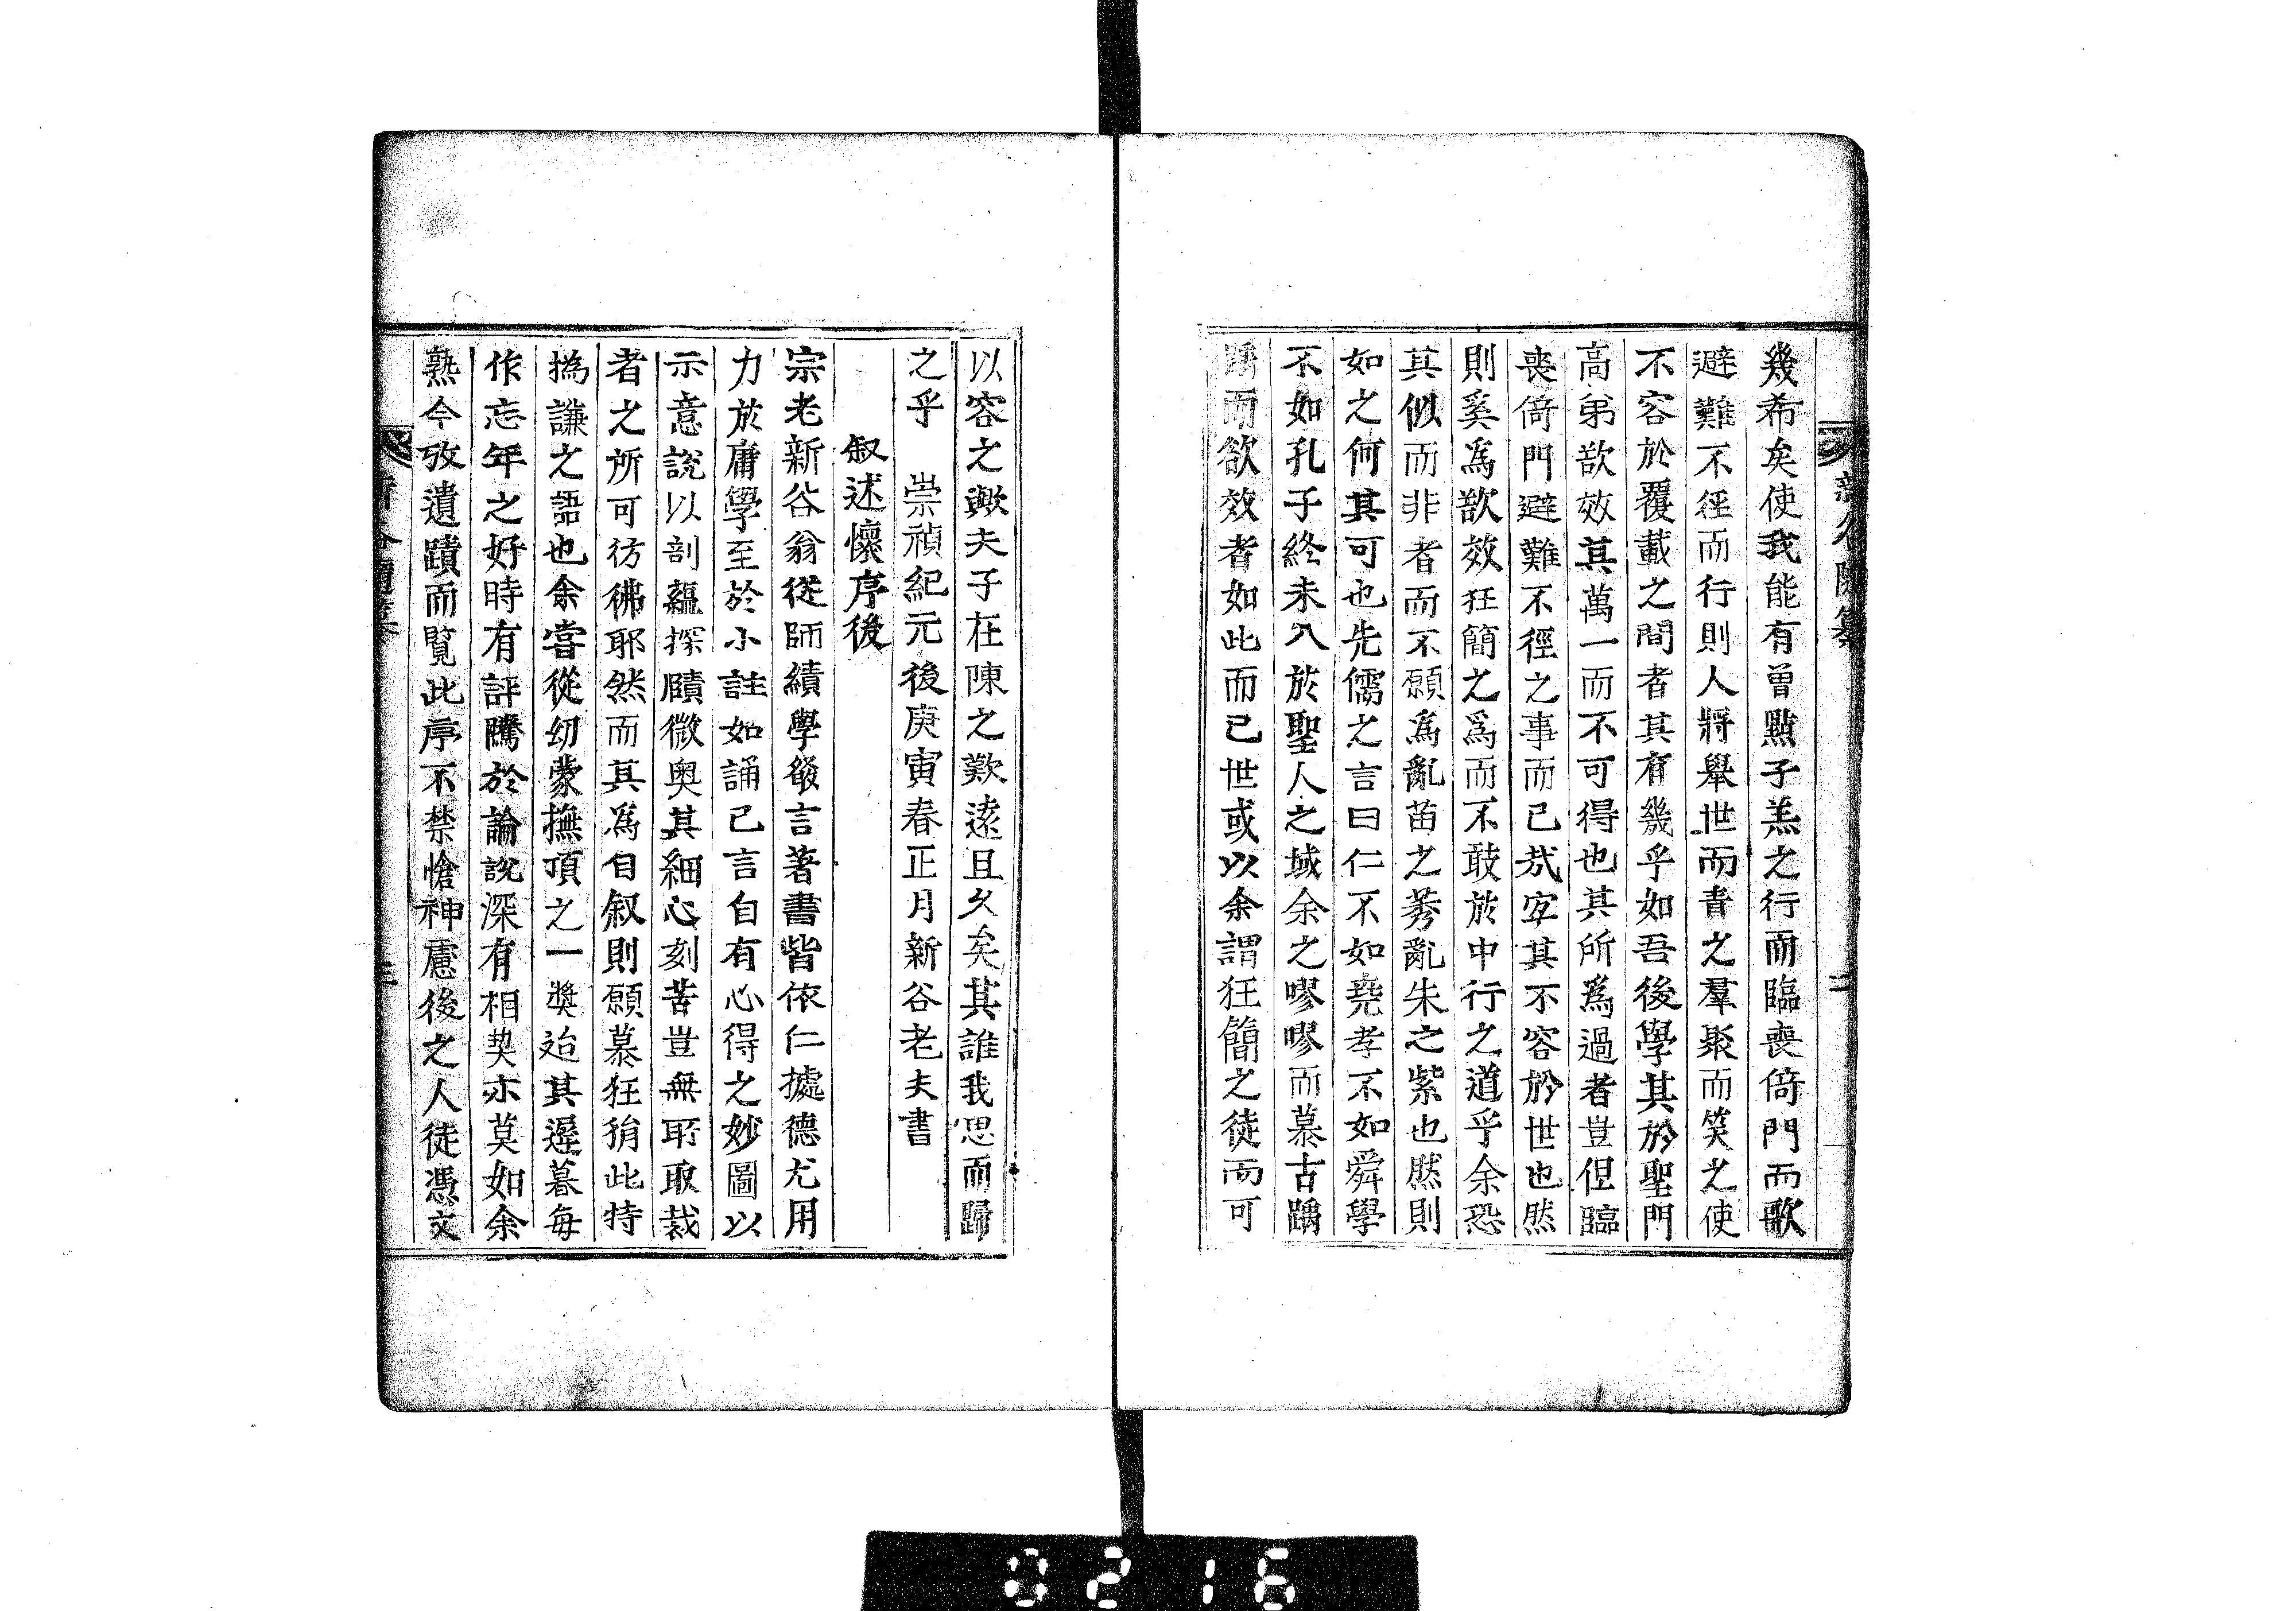 幾希矣使我能有曽點子羔之行而臨喪倚門而歌
避難不徑而行則人將舉世而眚之羣聚而笑之使
不容於覆載之間者其有幾乎如吾後學其於聖門
高弟欲效其萬一而不可得也其所爲過者豈但臨
喪倚門避難不徑之事而已㢤宐其不容於世也然
則奚爲欲效狂簡之爲而不敢於中行之道乎余恐
其似而非者而不願爲亂苗之莠亂朱之紫也然則
如之何其可也先儒之言曰仁不如堯孝不如舜學
不如孔子終未入於聖人之域余之嘐嘐而慕古踽
踽而欲效者如此而已世或以余謂狂簡之徒而可
以容之歟夫子在陳之歎逺且久矣其誰我思而歸
之乎 崇禎紀元後庚寅春正月新谷老夫書
叙述懷序後
宗老新谷翁從師績學發言著書皆依仁據德尤用
力於庸學至於小註如誦已言自有心得之妙圖以
示意說以剖蘊探賾微奧其細心刻苦豈無所取裁
者之所可彷彿耶然而其爲自叙則願慕狂狷此特
撝謙之語也余嘗從幼蒙撫頂之一奬迨其遲暮每
作忘年之好時有評騭於論說深有相契亦莫如余
熟今攷遺蹟而覽此序不禁愴神慮後之人徒憑文
新谷隨纂 二
新谷隨纂 三
0216